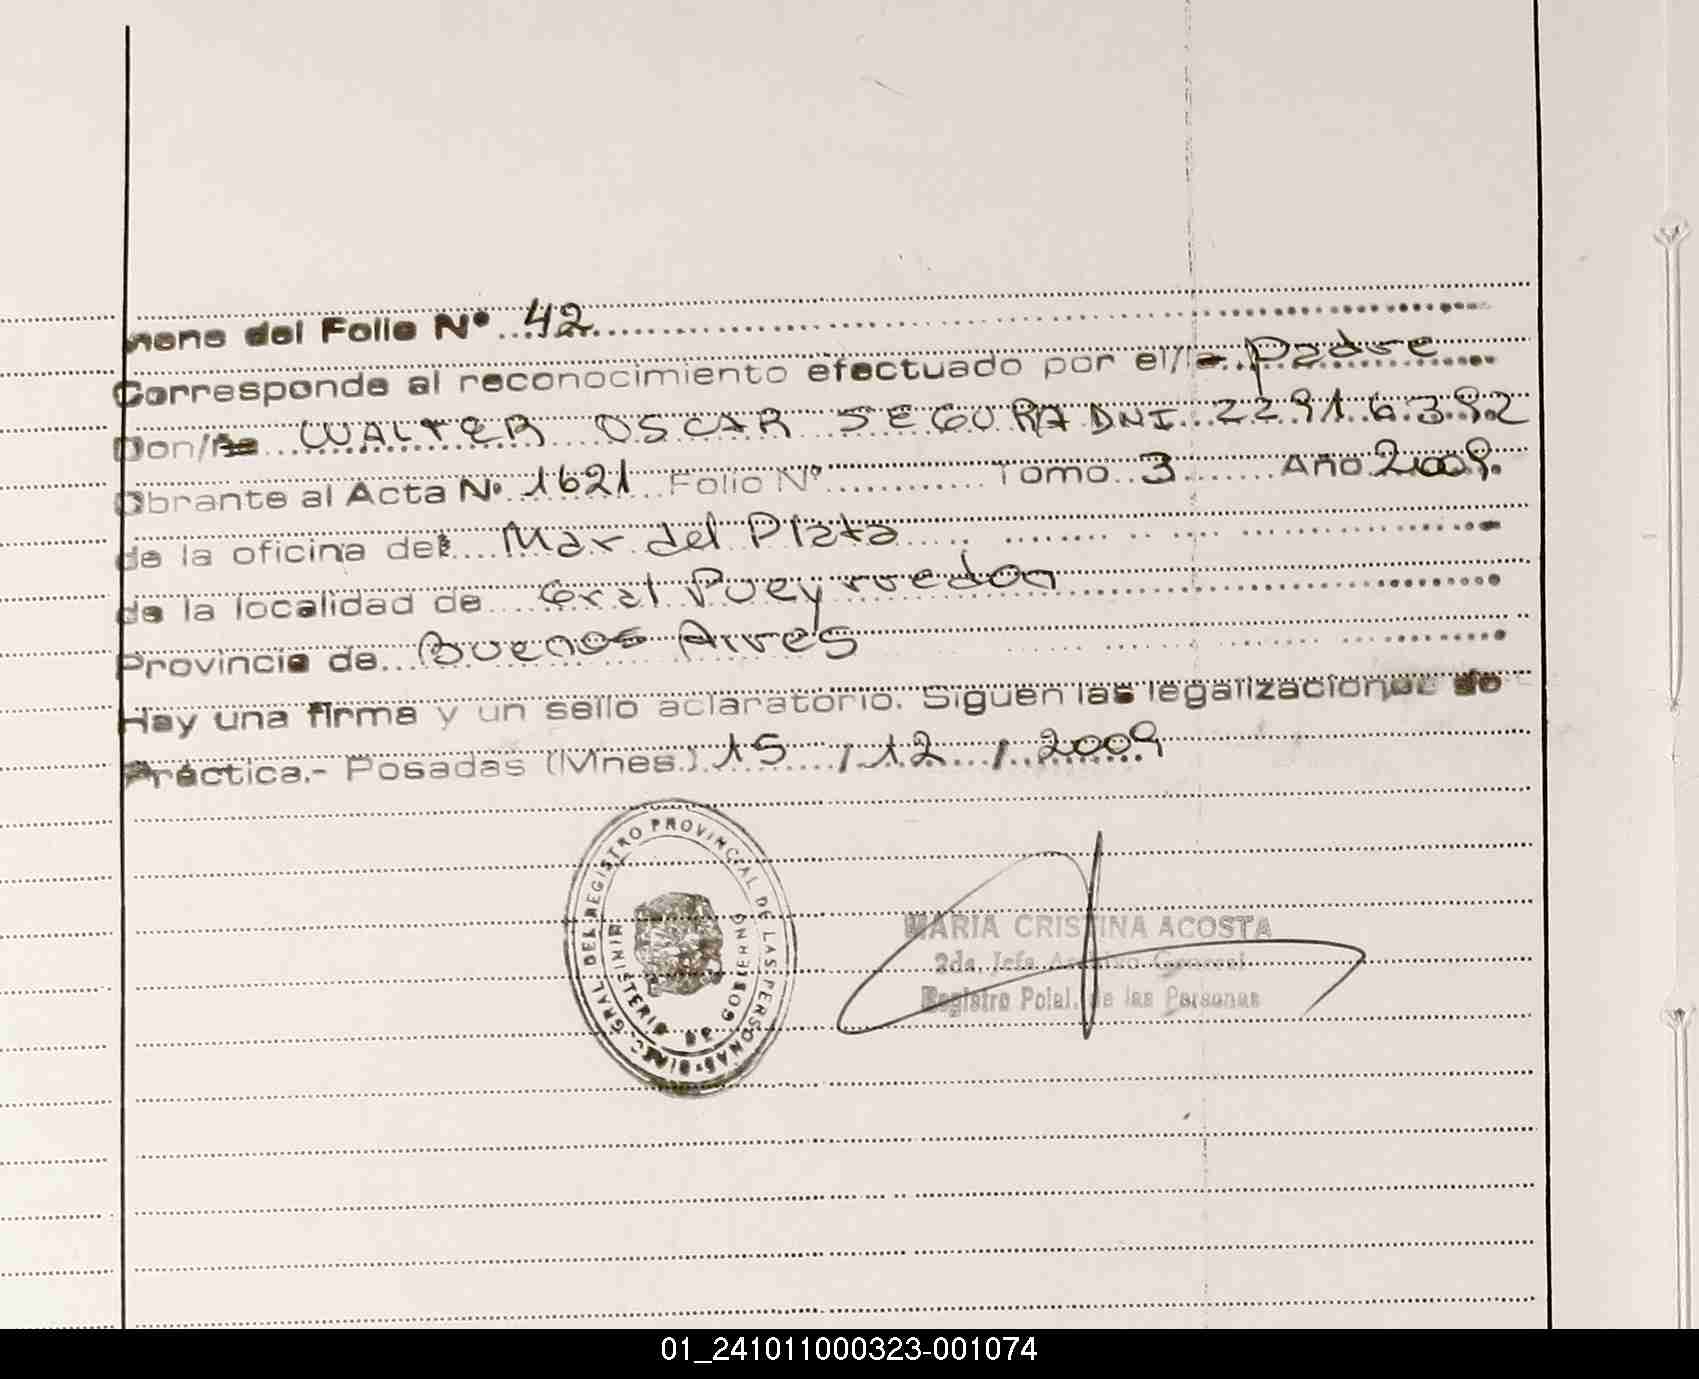 Viene del Folio Nº 42
Corresponde al reconocimiento efectuado por el/la Padre
Don/ña WALTER OSCAR SEGURA DNI 22.916.392
Obrante al Acta Nº 1621 Folio Nº Tomo 3 Año 2009
de la oficina del Mar del Plata
de la localidad de Gral Pueyrredon
Provincia de Buenos Aires
Hay una firma y un sello aclaratorio. Siguen las legalizaciones de
Práctica.- Posadas (Mnes.) 15 / 12 / 2009
DIREC. GRAL. DEL REGISTRO PROVINCIAL DE LAS PERSONAS
MINISTERIO DE GOBIERNO
MARIA CRISTINA ACOSTA
2da. Jefa Archivo General
Registro Pcial. de las Personas
01_241011000323-001074